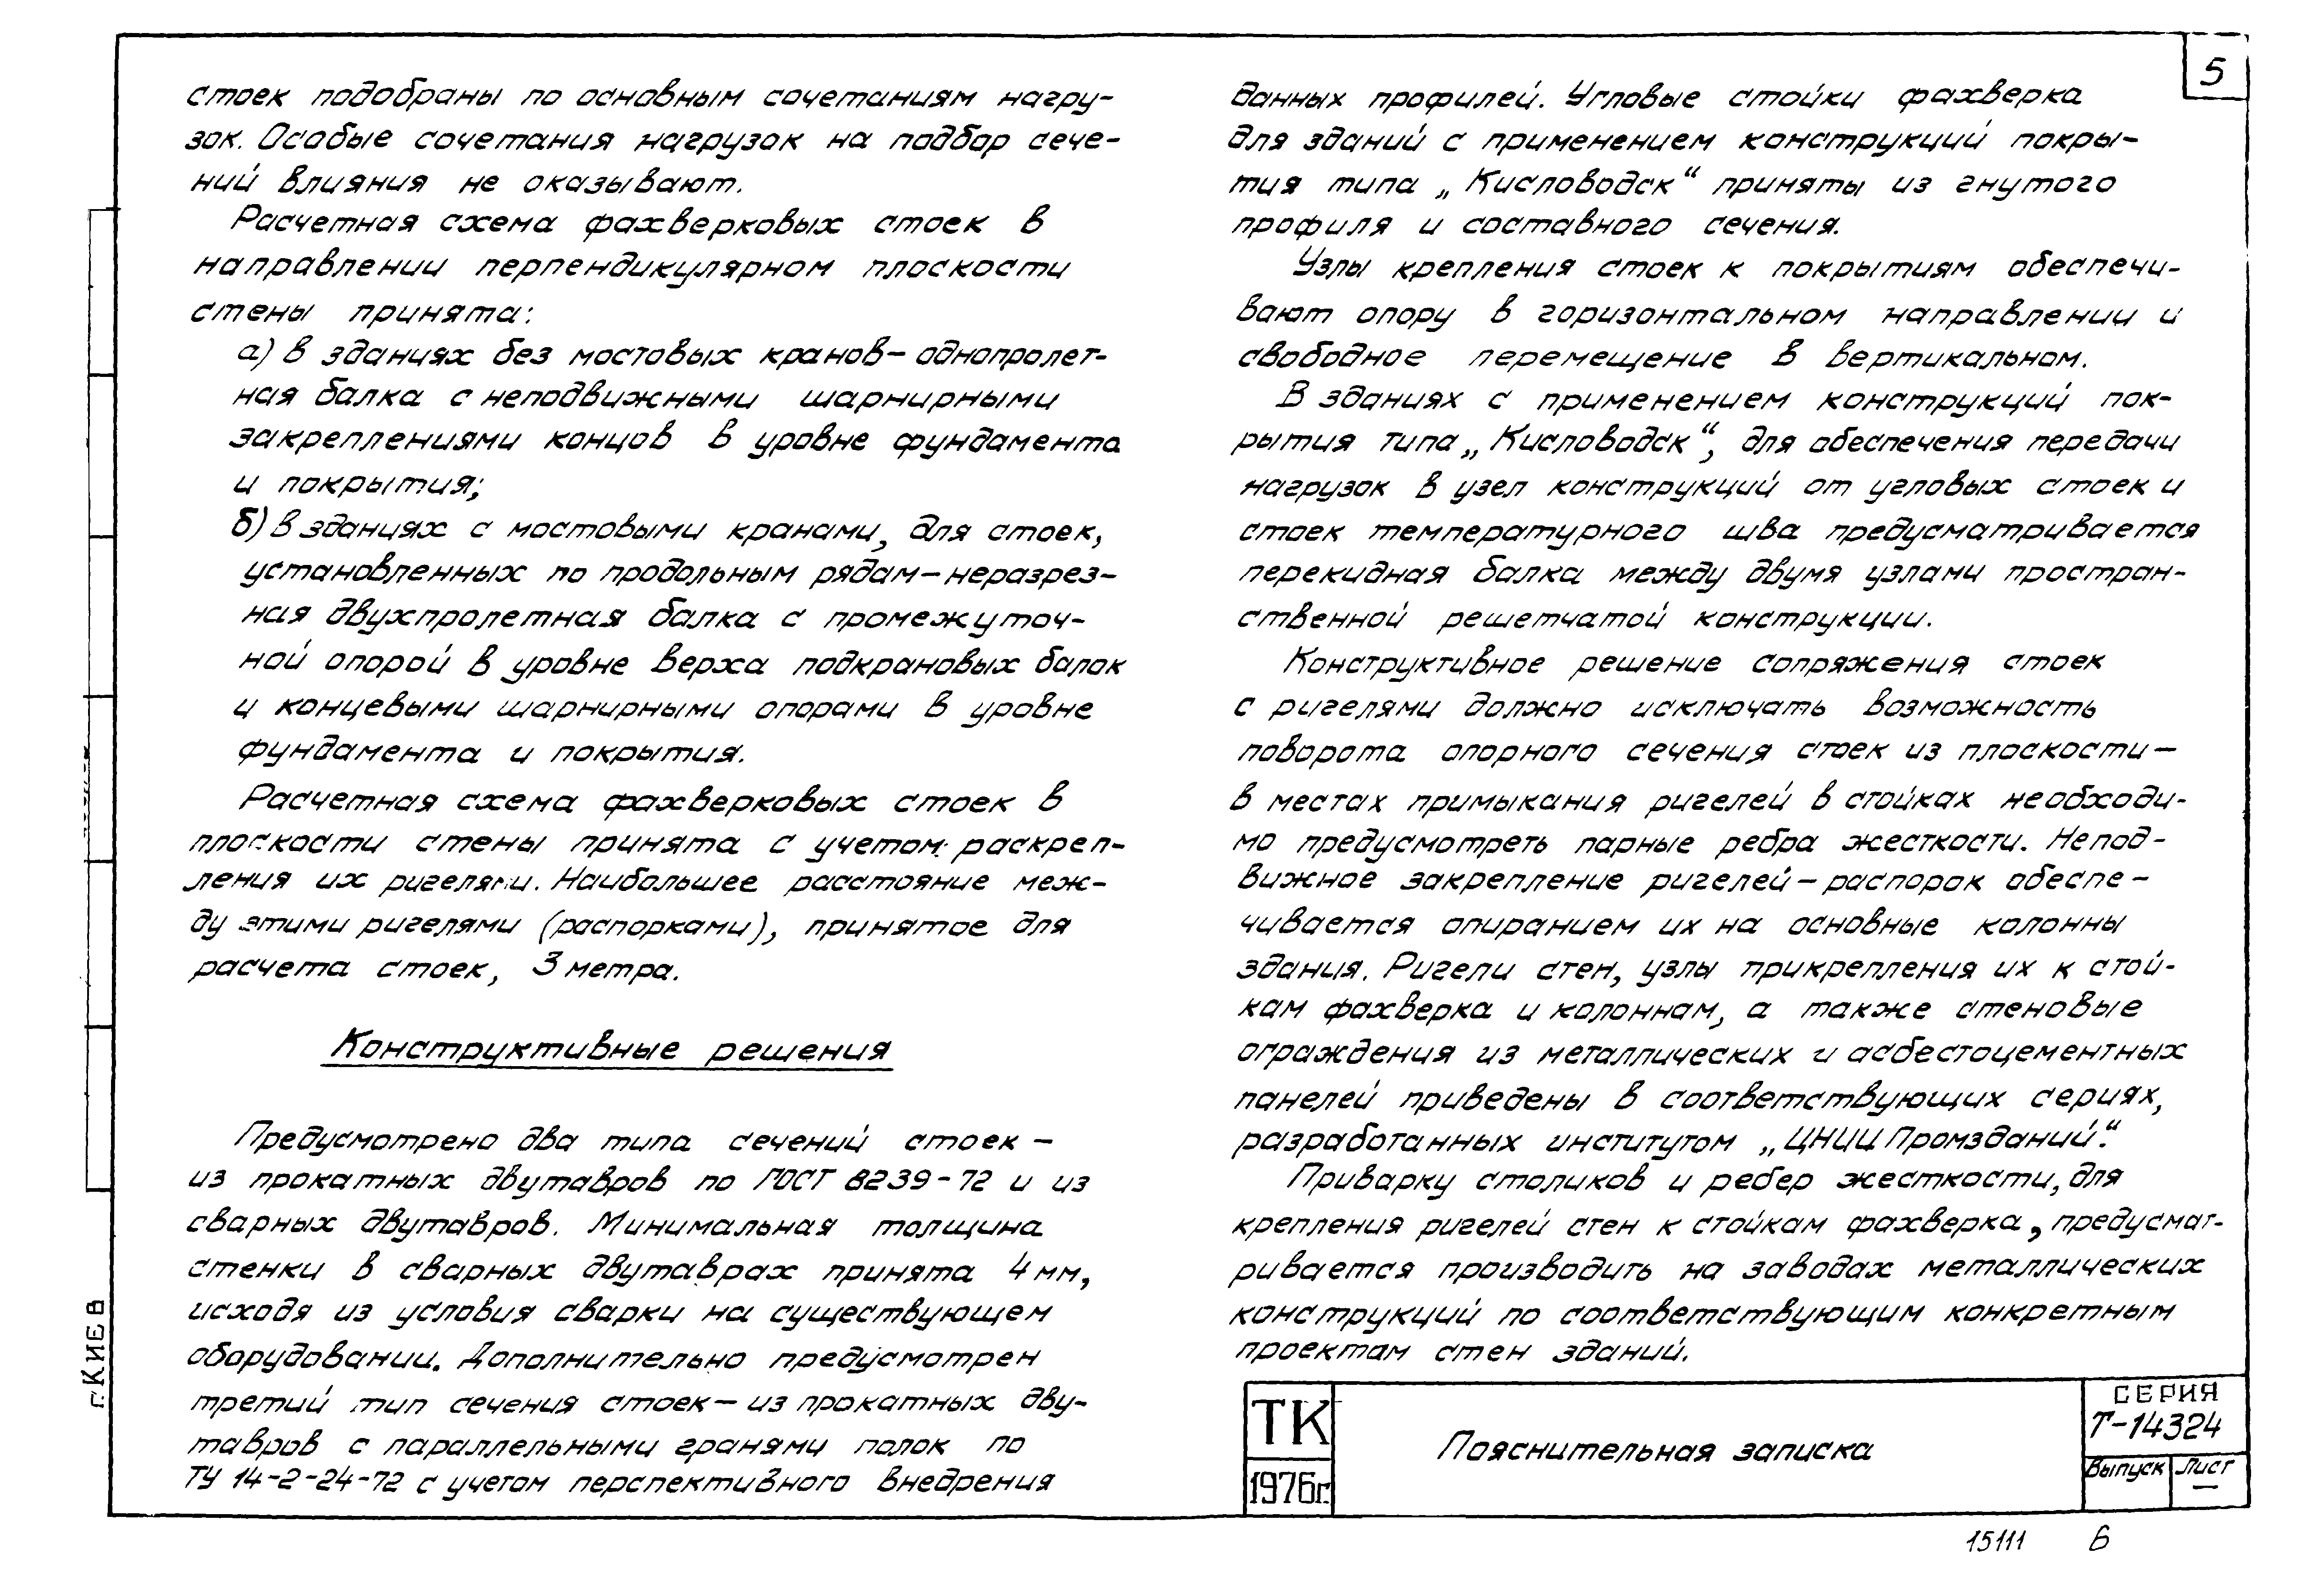 5
стоек подобраны по основным сочетаниям нагру-
зок. Особые сочетания нагрузок на подбор сече-
ний влияния не оказывают.
Расчетная схема фахверковых стоек в
направлении перпендикулярном плоскости
стены принята:
а) в зданиях без мостовых кранов – однопролет-
ная балка с неподвижными шарнирными
закреплениями концов в уровне фундамента
и покрытия;
б) в зданиях с мостовыми кранами, для стоек,
установленных по продольным рядам – неразрез-
ная двухпролетная балка с промежуточ-
ной опорой в уровне верха подкрановых балок
и концевыми шарнирными опорами в уровне
фундамента и покрытия.
Расчетная схема фахверковых стоек в
плоскости стены принята с учетом раскреп-
ления их ригелями. Наибольшее расстояние меж-
ду этими ригелями (распорками), принятое для
расчета стоек, 3 метра.
Конструктивные решения
Предусмотрено два типа сечений стоек –
из прокатных двутавров по ГОСТ 8239-72 и из
сварных двутавров. Минимальная толщина
стенки в сварных двутаврах принята 4 мм,
исходя из условия сварки на существующем
оборудовании. Дополнительно предусмотрен
третий тип сечения стоек – из прокатных дву-
тавров с параллельными гранями полок по
ТУ 14-2-24-72 с учетом перспективного внедрения
данных профилей. Угловые стойки фахверка
для зданий с применением конструкций покры-
тия типа „Кисловодск“ приняты из гнутого
профиля и составного сечения.
Узлы крепления стоек к покрытиям обеспечи-
вают опору в горизонтальном направлении и
свободное перемещение в вертикальном.
В зданиях с применением конструкций пок-
рытия типа „Кисловодск“, для обеспечения передачи
нагрузок в узел конструкций от угловых стоек и
стоек температурного шва предусматривается
перекидная балка между двумя узлами простран-
ственной решетчатой конструкции.
Конструктивное решение сопряжения стоек
с ригелями должно исключать возможность
поворота опорного сечения стоек из плоскости –
в местах примыкания ригелей в стойках необходи-
мо предусмотреть парные ребра жесткости. Непод-
вижное закрепление ригелей – распорок обеспе-
чивается опиранием их на основные колонны
здания. Ригели стен, узлы прикрепления их к стой-
кам фахверка и колоннам, а также стеновые
ограждения из металлических и асбестоцементных
панелей приведены в соответствующих сериях,
разработанных институтом „ЦНИИ Промзданий“.
Приварку столиков и ребер жесткости, для
крепления ригелей стен к стойкам фахверка, предусмат-
ривается производить на заводах металлических
конструкций по соответствующим конкретным
проектам стен зданий.
г. КИЕВ
ТК
1976г.
Пояснительная записка
СЕРИЯ
Т-14324
Выпуск
Лист
—
15111 6